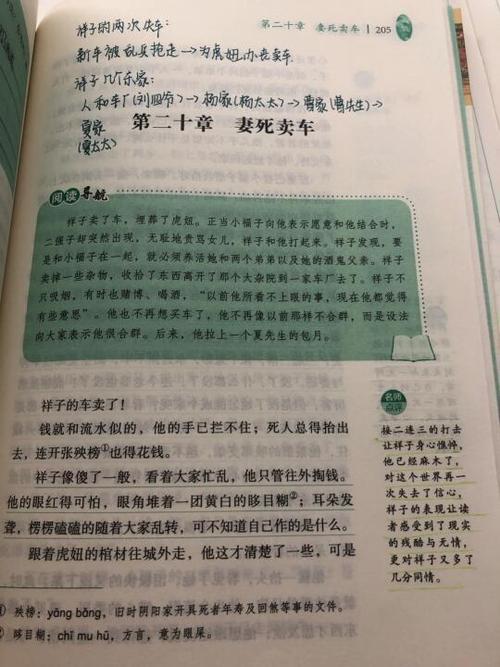 第二十章　妻死卖车 | 205
祥子的两次失车：
新车被乱兵抢走→为虎妞办丧卖车
祥子几个东家：
人和车厂(刘四爷)→杨家(杨太太)→曹家(曹先生)→
夏家
(夏太太)
第二十章　妻死卖车
阅读导航
祥子卖了车，埋葬了虎妞。正当小福子向他表示愿意和他结合时，
二强子却突然出现，无耻地责骂女儿，祥子和他打起来。祥子发现，要
是和小福子在一起，就必须养活她和两个弟弟以及她的酒鬼父亲。祥子
卖掉一些杂物，收拾了东西离开了那个大杂院到一家车厂去了。祥子不
只吸烟，有时也赌博、喝酒，“以前他所看不上眼的事，现在他都觉得
有些意思”。他也不再想买车了，他不再像以前那样不合群，而是设法
向大家表示他很合群。后来，他拉上一个夏先生的包月。
祥子的车卖了！
钱就和流水似的，他的手已拦不住；死人总得抬出
去，连开张殃榜①也得花钱。
祥子像傻了一般，看着大家忙乱，他只管往外掏钱。
他的眼红得可怕，眼角堆着一团黄白的眵目糊②；耳朵发
聋，楞楞磕磕的随着大家乱转，可不知道自己作的是什么。
跟着虎妞的棺材往城外走，他这才清楚了一些，可是
名师
点评
接二连三的打击
让祥子身心憔悴，
他已经麻木了，
对这个世界再一
次失去了信心，
祥子的表现让读
者感受到了现实
的残酷与无情，
更对祥子又多了
几分同情。
① 殃榜：yāng bǎng，旧时阴阳家开具死者年寿及回煞等事的文件。
② 眵目糊：chī mu hū，方言，意为眼屎。